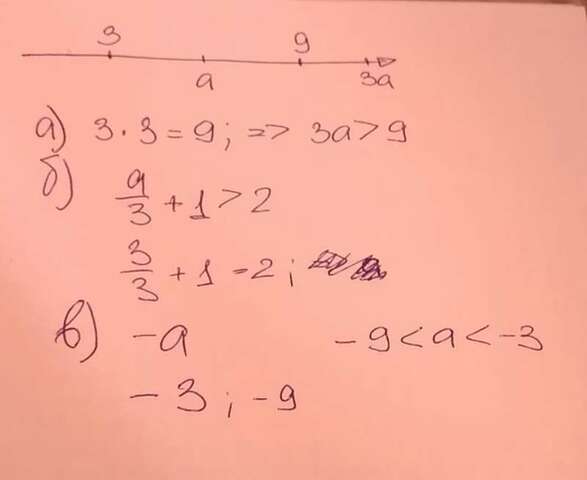 3 9
a 3a
а) 3 · 3 = 9; => 3a > 9
б)
a/3 + 1 > 2
3/3 + 1 = 2;
в) -a -9 < a < -3
-3; -9